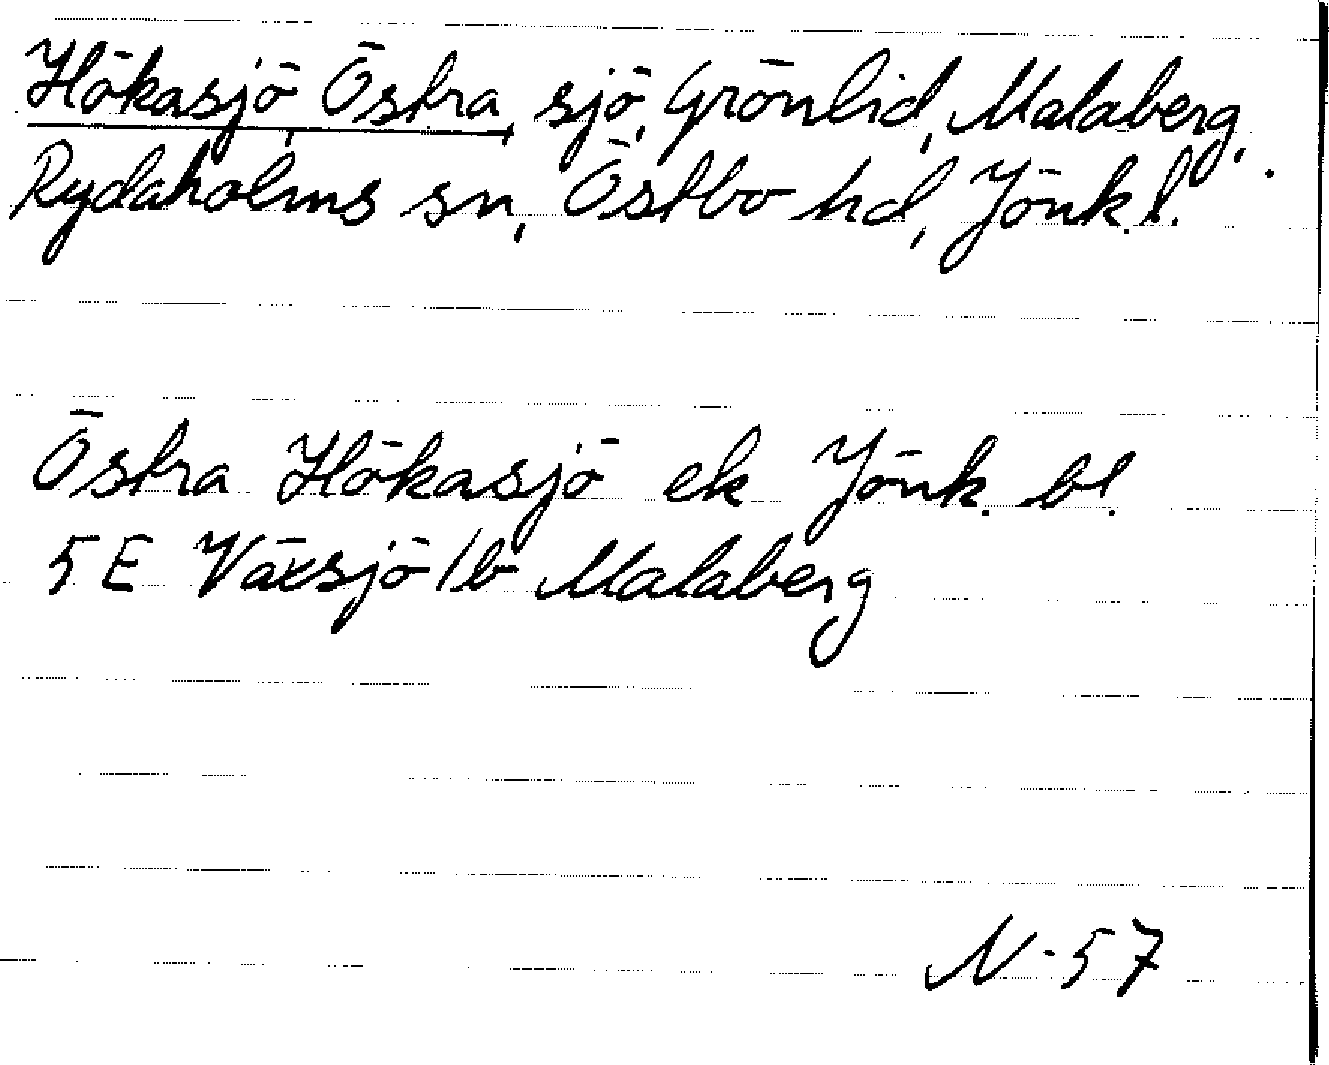 Hökasjö, Östra, sjö, Grönlid, Malaberg,
Rydaholms sn, Östbo hd, Jönk.l.
Östra Hökasjö ek Jönk. bl.
5 E Växsjö/b Malaberg
N-57